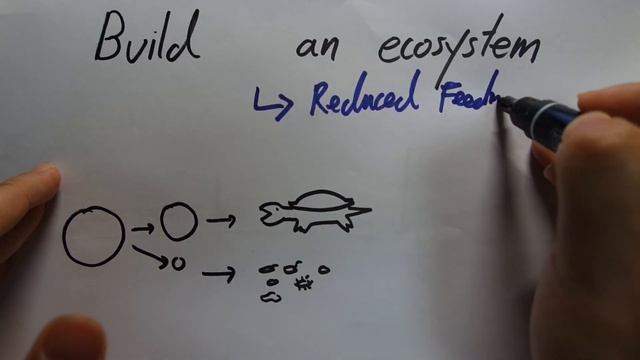 Build an ecosystem
↳ Reduced Feed